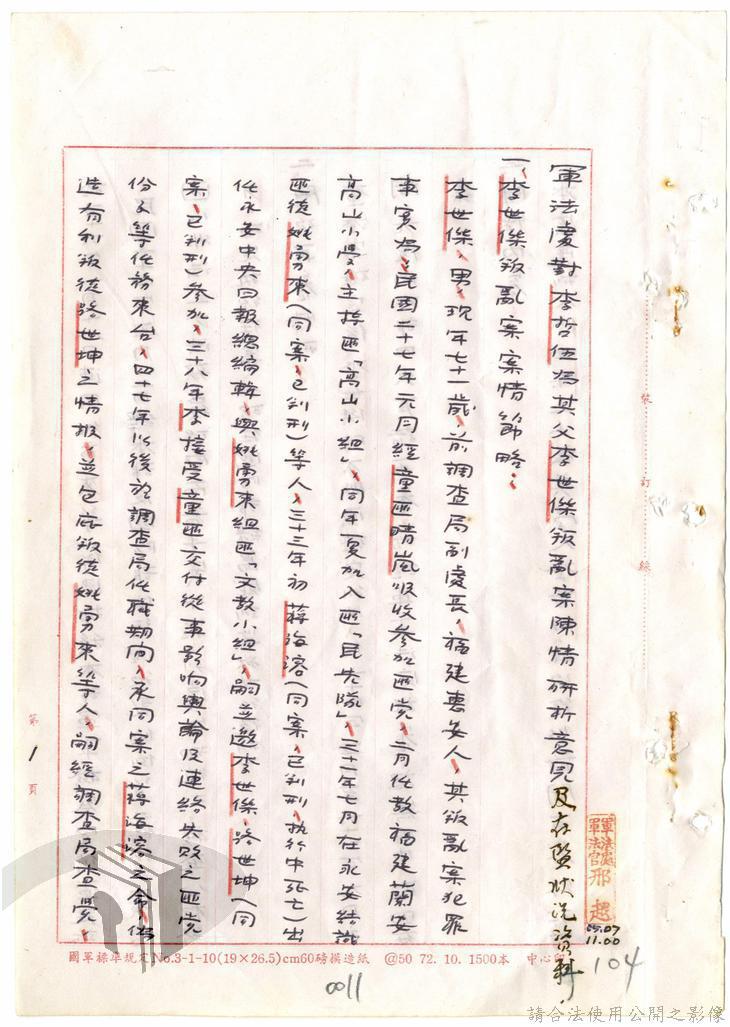 軍法處對李哲伍為其父李世傑叛亂案陳情研析意見及存賢狀況資料
一、李世傑叛亂案案情節略：
李世傑、男、現年七十一歲、前調查局副處長、福建惠安人、其叛亂案犯罪
事實為：民國二十七年元月經童匪晴嵐吸收參加匪党、二月任教福建蘭安
高山小學、主持匪「高山小組」、同年夏加入匪「民先隊」、三十一年七月在永安結識
匪徒姚勇來（同案、已判刑）等人、三十三年初蔣海溶（同案、已判刑、執行中死亡）出
任永安中央日報總編輯、與姚勇來組匪「文教小組」、嗣並邀李世傑、路世坤（同
案、已判刑）參加、三十八年李接受童匪交付從事影响輿論及連絡失敗之匪党
份子等任務來台、四十七年以後於調查局任職期向、承同案之蔣海溶之命、
造有利叛徒路世坤之情报、並包庇叛徒姚勇來等人、嗣經調查局查覺、
第1頁
裝 訂 線
軍法處
軍法官 邢 超
09.07
11.00
104
國軍標準規定No.3-1-10(19×26.5)cm60磅模造紙 @50 72.10.1500本 中心印
0011
請合法使用公開之影像